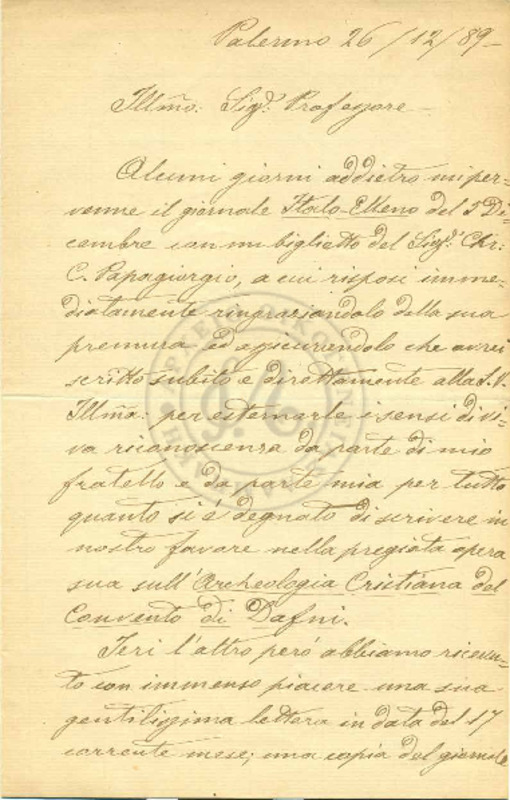 Palermo 26/12/89-
Illmo: Sigr. Professore
Alcuni giorni addietro mi per=
venne il giornale Italo-Elleno del 5 Di=
cembre con un biglietto del Sigr. Chr:
C. Papagiorgio, a cui risposi imme=
diatamente ringraziandolo della sua
premura ed assicurandolo che avrei
scritto subito e direttamente alla S.V.
Illma: per esternarle i sensi di vi=
va riconoscenza da parte di mio
fratello e da parte mia per tutto
quanto si è degnato di scrivere in
nostro favore nella pregiata opera
sua sull'Archeologia Cristiana del
Convento di Dafni.
Ieri l'altro però abbiamo ricevu=
to con immenso piacere una sua
gentilissima lettera in data del 17
corrente mese; una copia del giornale